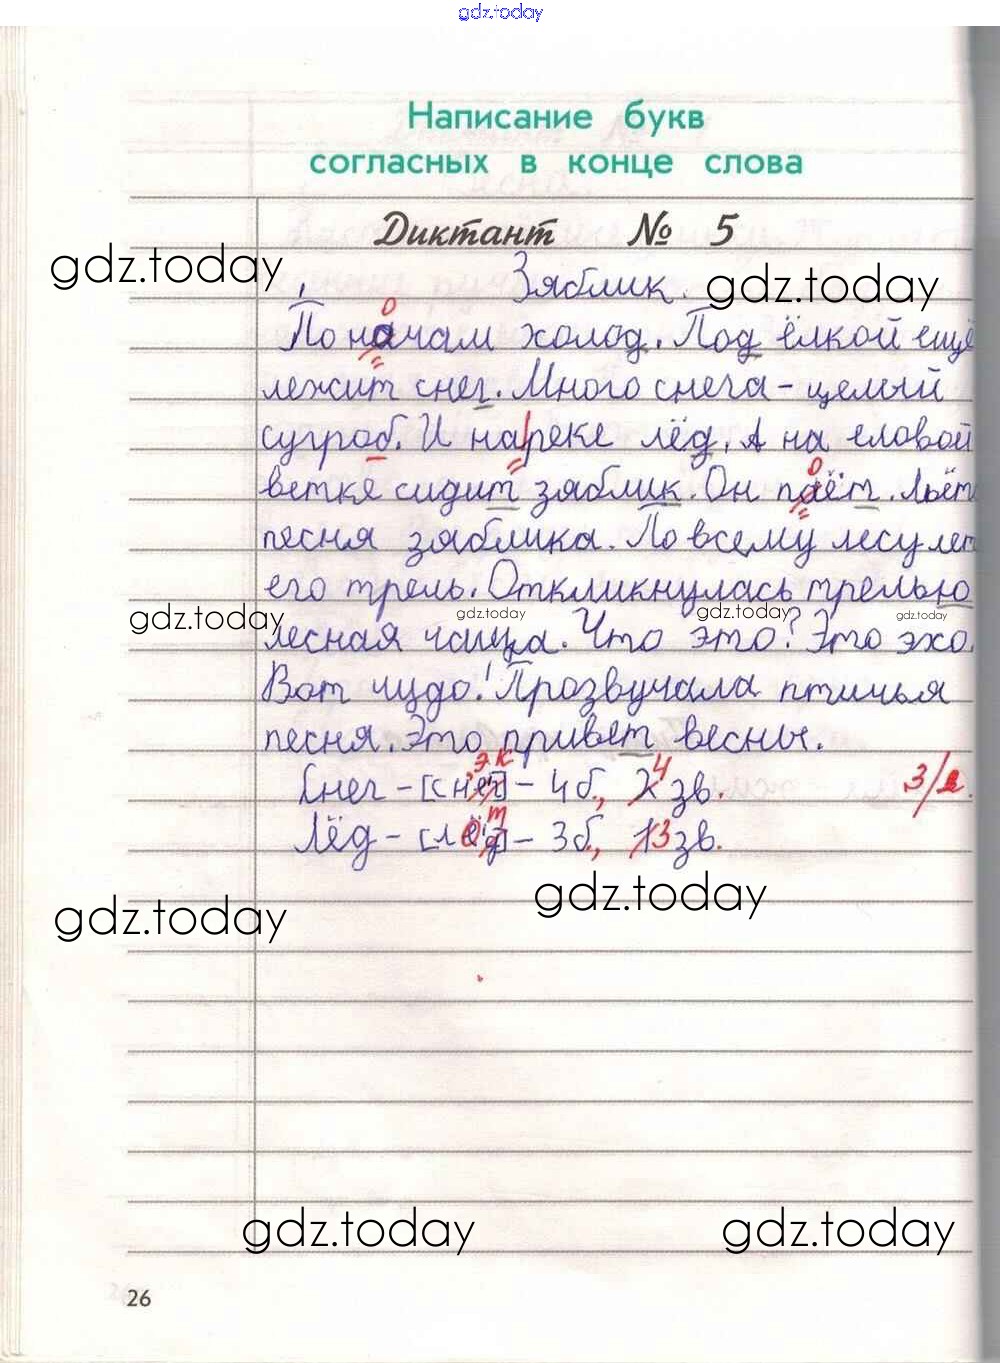 gdz.today
Написание букв
согласных в конце слова
Диктант № 5
gdz.today
Зяблик.
gdz.today
о
По начам холод. Под ёлкой ещё
лежит снег. Много снега - целый
сугроб. И на|реке лёд. А на еловой
о
ветке сидит зяблик. Он паёт. Льёт
песня зяблика. По всему лесу лет
его трель. Откликнулась трелью
gdz.today gdz.today gdz.today gdz.today
лесная чаща. Что это? Это эхо.
Вот чудо! Прозвучала птичья
песня. Это привет весны.
э к 4
Снег - [снег] - 4 б., зв. 3/
т
Лёд - [лёд] - 3 б., 3 зв.
gdz.today
gdz.today
gdz.today
gdz.today
26